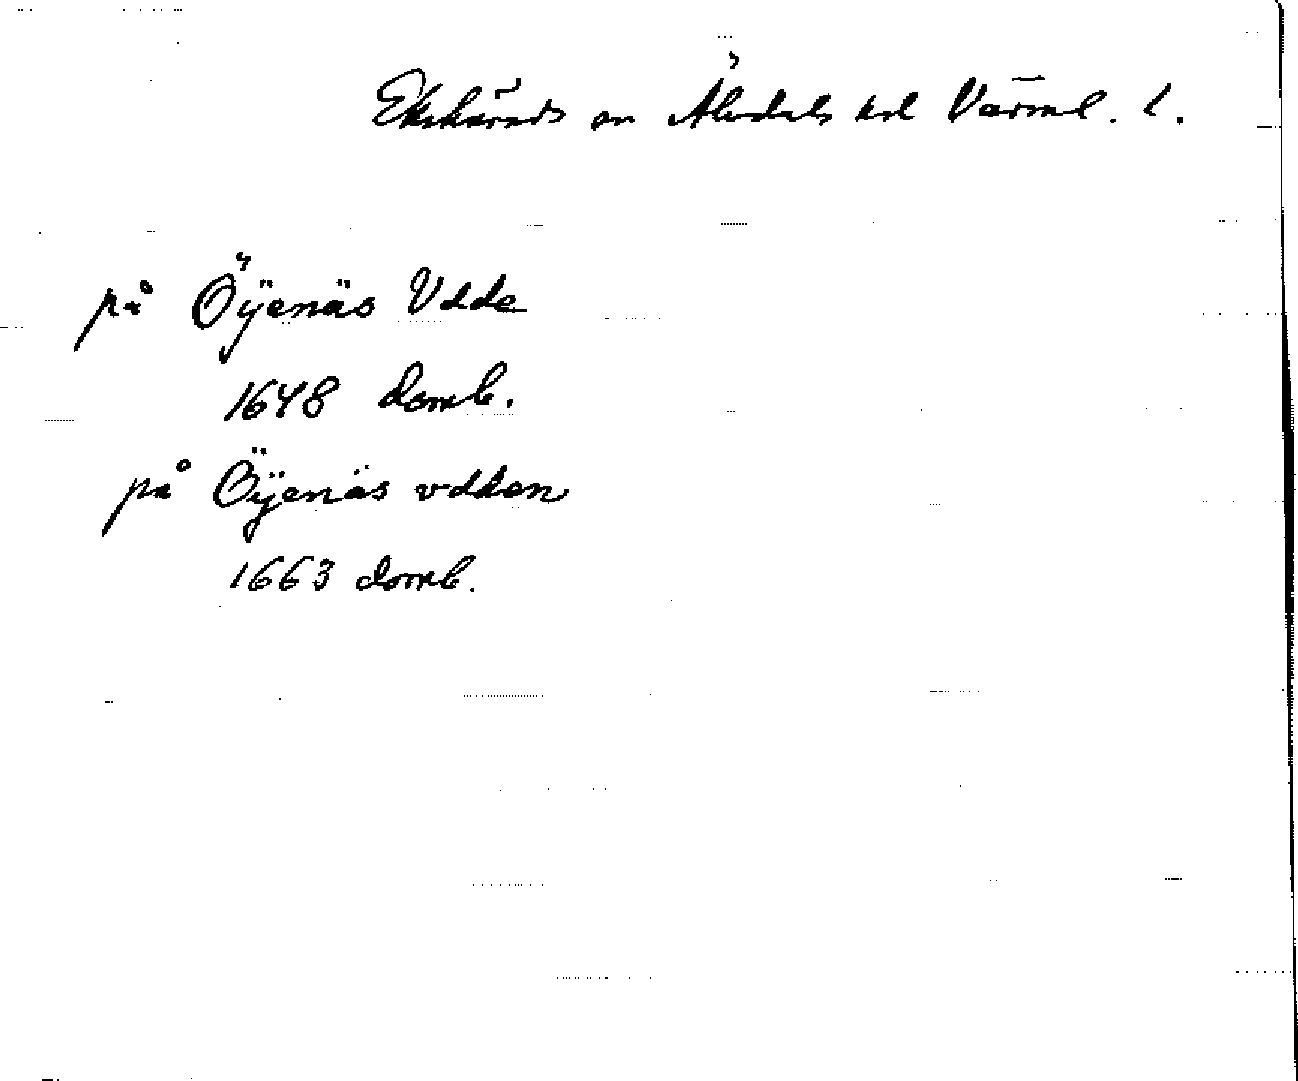 Ekshärads sn Älvdals hd Värml. l.
på Öÿenäs Vdde
1648 domb.
på Öÿenäs vdden
1663 domb.